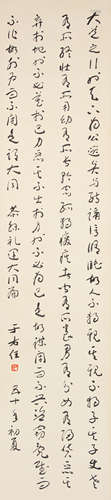 大道之行也天下為公選賢與能講信修睦故人不獨親其親不獨子其子使老
有所終壯有所用幼有所長矜寡孤獨廢疾者皆有所養男有分女有歸貨惡其
棄於地也不必藏於己力惡其不出於身也不必為己是故謀閉而不興盜竊亂賊而
不作故外戶而不閉是謂大同 禮運大同篇 于右任
五十年初夏